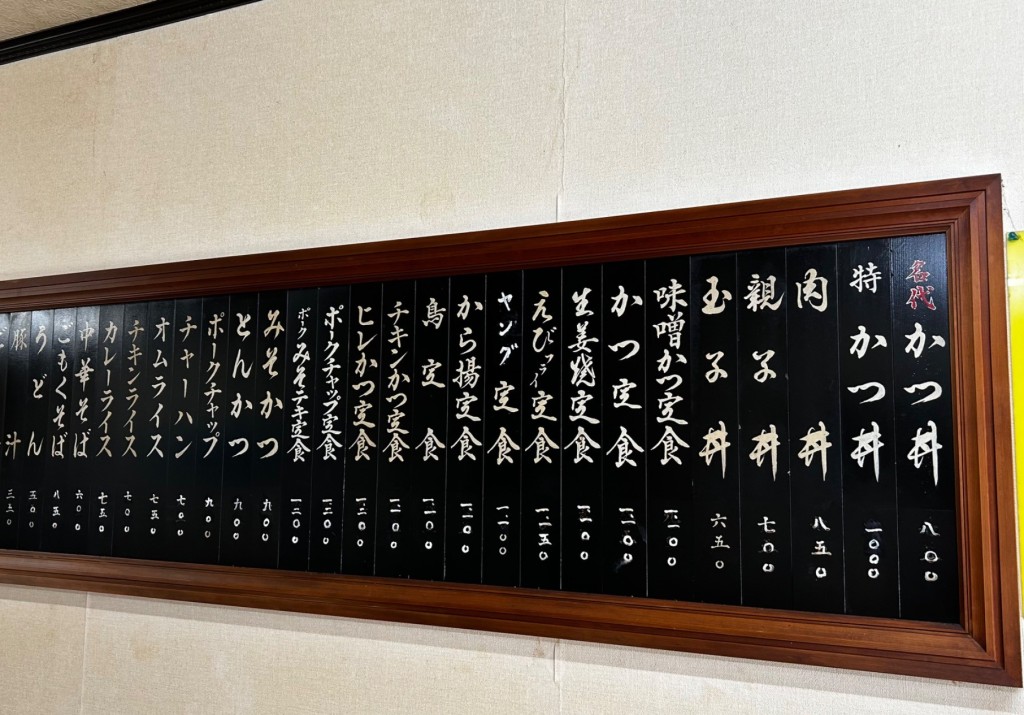 名代 かつ丼 八〇〇
特 かつ丼 一〇〇〇
肉丼 八五〇
親子丼 七〇〇
玉子丼 六五〇
味噌かつ定食 一一〇〇
かつ定食 一一〇〇
生姜焼定食 一一〇〇
えびフライ定食 一一五〇
ヤング定食 一一〇〇
から揚定食 一一〇〇
鳥定食 一一〇〇
チキンかつ定食 一一〇〇
ヒレかつ定食 一三〇〇
ポークチャップ定食 一三〇〇
ポークみそテキ定食 一三〇〇
みそかつ 九〇〇
とんかつ 九〇〇
ポークチャップ 九〇〇
チャーハン 七〇〇
オムライス 七五〇
チキンライス 七〇〇
カレーライス 七五〇
中華そば 六〇〇
ごもくそば 八五〇
うどん 五〇〇
豚汁 三五〇